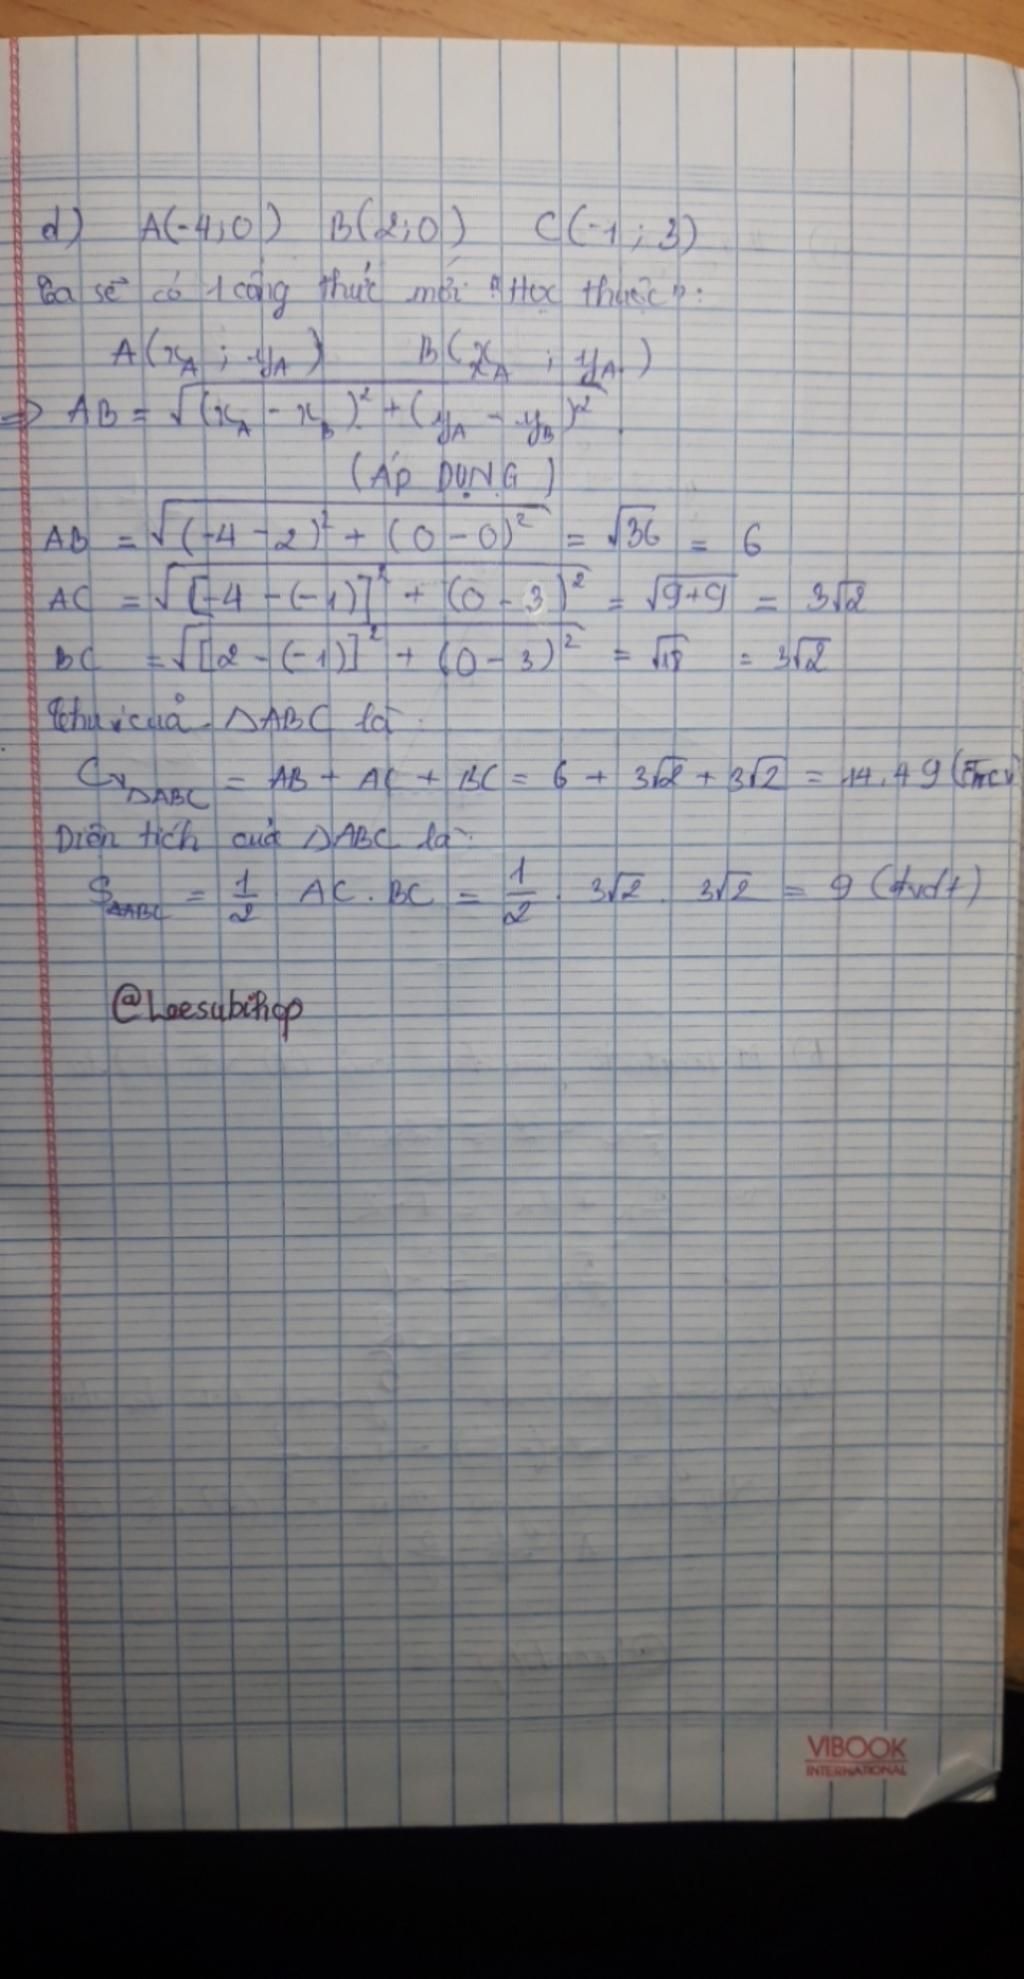 d) A(-4;0) B(2;0) C(-1;3)
Ta sẽ có 1 công thức mới "Học thuộc":
A(x_A ; y_A) B(x_A ; y_A)
=> AB = √((x_A - x_B)² + (y_A - y_B)²)
(ÁP DỤNG)
AB = √((-4-2)² + (0-0)²) = √36 = 6
AC = √([-4-(-1)]² + (0-3)²) = √(9+9) = 3√2
BC = √([2-(-1)]² + (0-3)²) = √18 = 3√2
của ΔABC là:
C_ΔABC = AB + AC + BC = 6 + 3√2 + 3√2 = 14,49
Diện tích của ΔABC là:
S_ΔABC = 1/2 AC . BC = 1/2 . 3√2 . 3√2 = 9 (đvdt)
@Leesubihop
VIBOOK
INTERNATIONAL